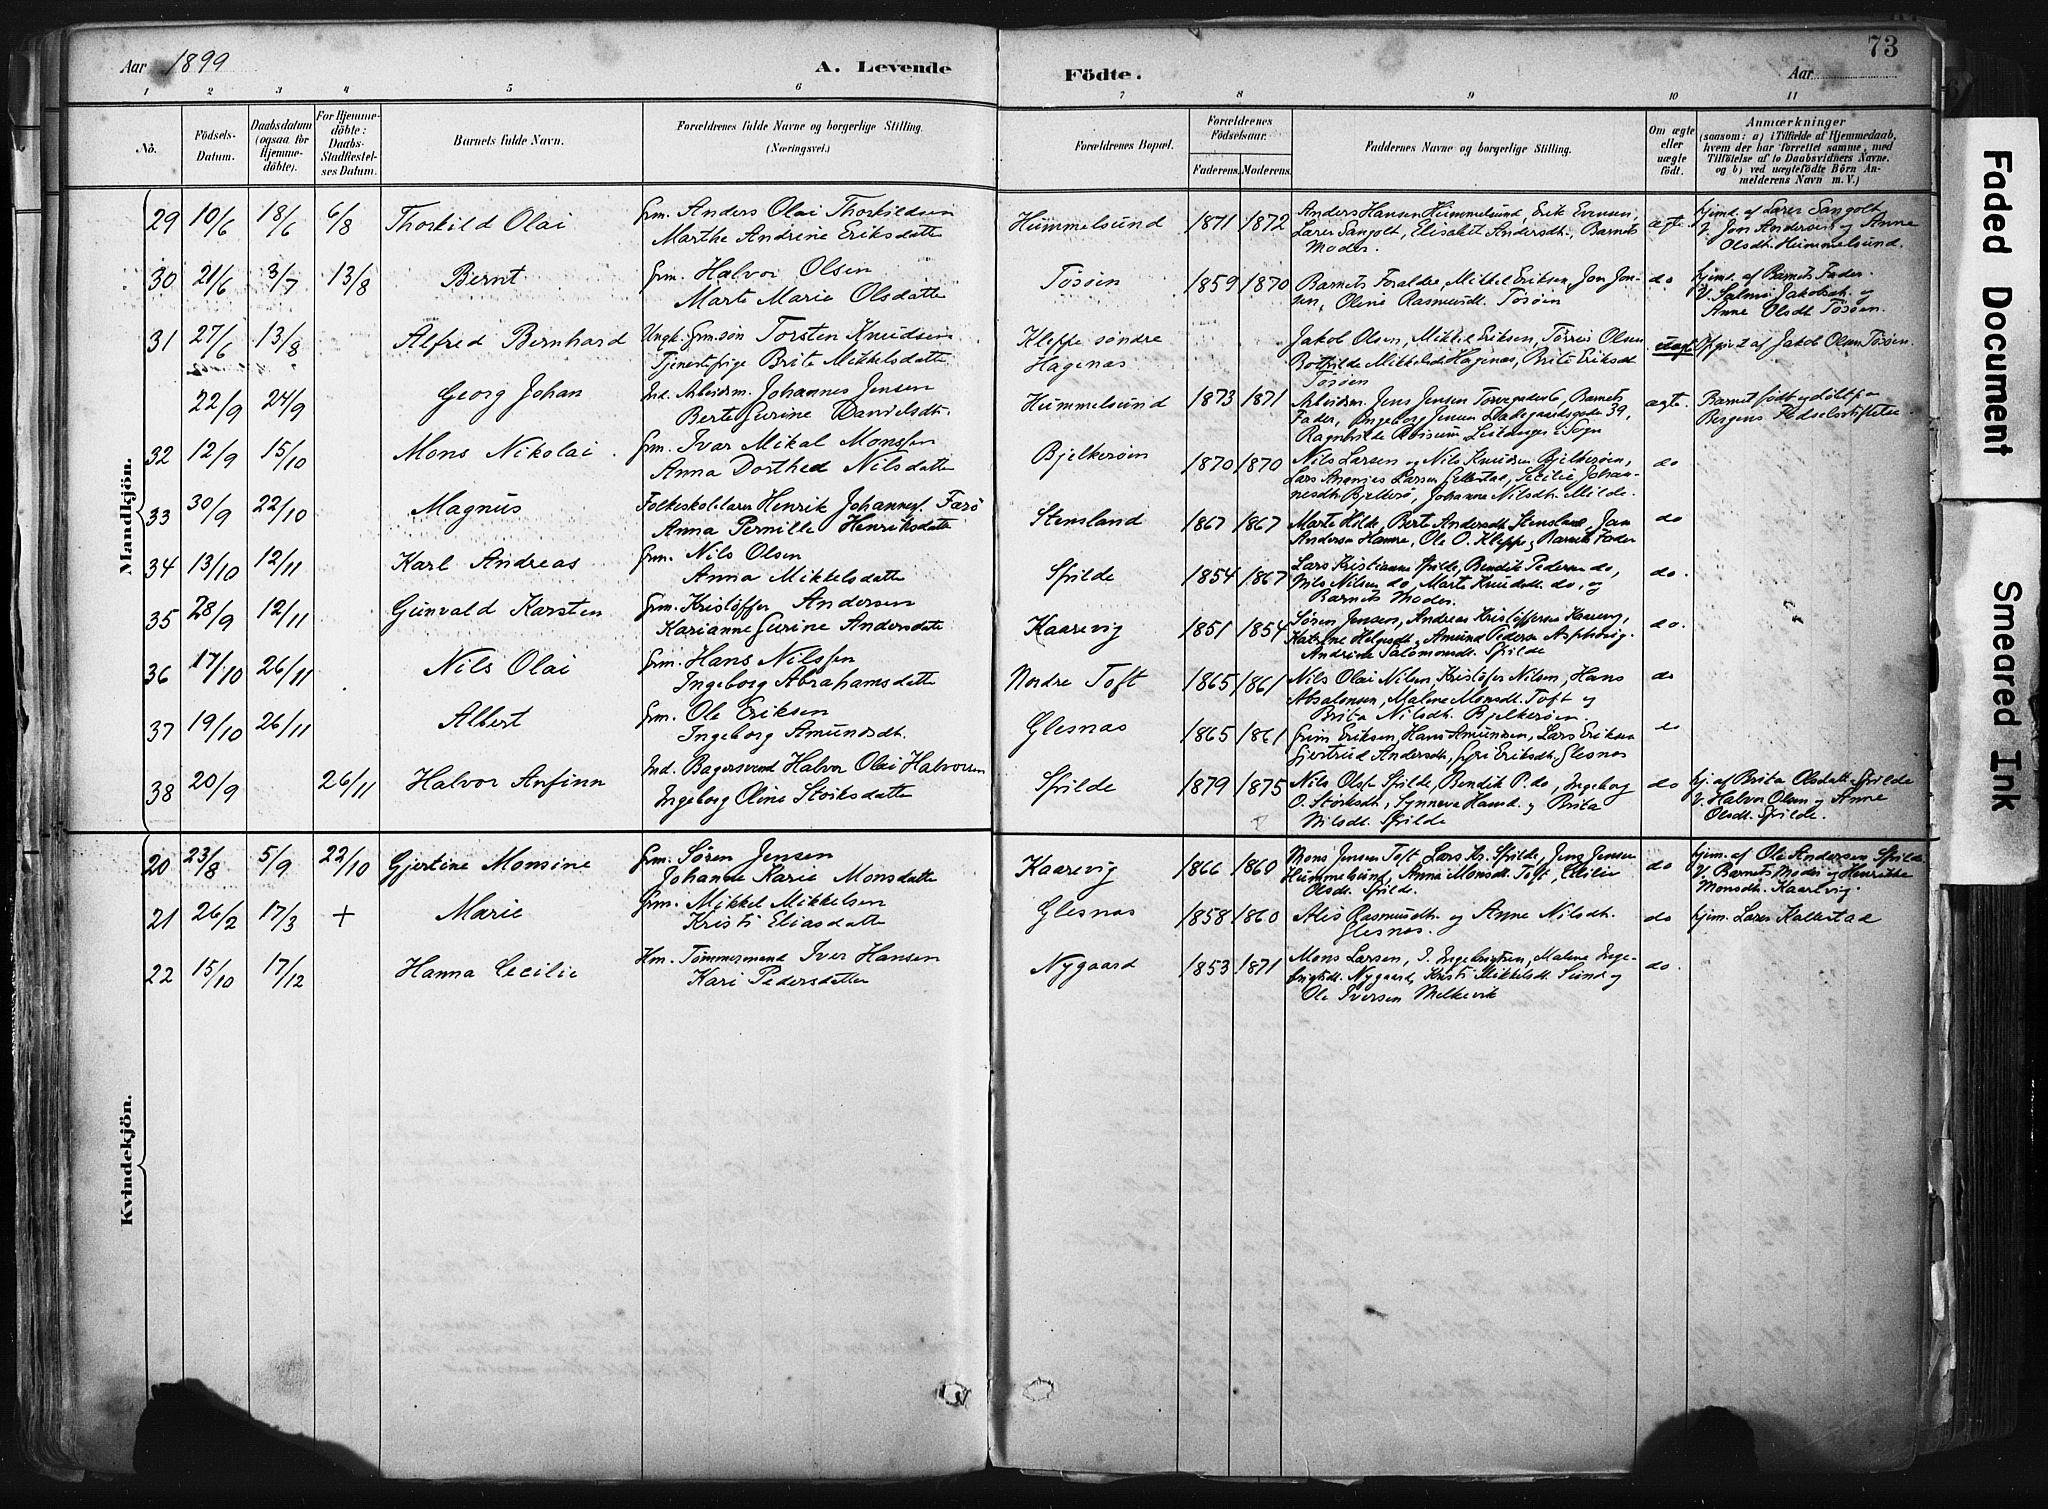 Aar 1899
A. Levende
Födte.
Aar
73
1 2 3 4 5 6 7 8 9 10 11
No.
Födsels-Datum.
Daabsdatum (ogsaa for Hjemme-döbte).
For Hjemme-döbte: Daabs-Stadfæstel-ses Datum.
Barnets fulde Navn.
Forældrenes fulde Navne og borgerlige Stilling.
(Næringsvei.)
Forældrenes Bopæl.
Forældrenes Födselsaar.
Faderens. Moderens.
Faddernes Navne og borgerlige Stilling.
Om ægte eller uægte født.
Anmærkninger
(saasom: a) i Tilfælde af Hjemmedaab,
hvem der har forrettet samme, med
Tilföielse af to Daabsvidners Navne.
og b) ved uægtefödte Börn An-
melderens Navn m. V.)
Mandkjön.
29 10/6 18/6 6/8 Thorkild Olai Grm. Anders Olai Thorkildsen
Marthe Andrine Eriksdatter
Hummelsund 1871 1872 Anders Hansen Hummelsund, Erik Evensen,
Lars Sangolt, Elisabet Andersdh., Barnets
Moder.
ægte hjmd. af Lars Sangolt
V. Jon Andersen og Anne
Olsdh. Hummelsund.
30 21/6 3/7 13/8 Bernt Grm. Halvor Olsen
Marte Marie Olsdatter
Tösöen 1859 1870 Barnets Foraldre, Mikkel Eriksen, Jon Jon-
sen, Oline Rasmusdt. Tösöen
do hjmd. af Barnets Fader.
V. Salmo Jakobsdt. og
Anne Olsdt. Tösöen.
31 27/6 13/8 Alfred Bernhard Ungk. Grm.søn Torsten Knudsen
Tjenestepige Brite Mikkelsdatter
Kleppe søndre
Hagenas
Jakob Olsen, Mikkel Eriksen, Törris Olsen
Bothilde Mikkelsdt Hagenas, Brite Eriksdt
Tösöen
uægte Opgivet af Jakob Olsen Tösöen.
22/9 24/9 Georg Johan Ind. Arbeidsm. Johannes Jensen
Berte Gurine Danielsdt.
Hummelsund 1873 1871 Arbeidsm. Jens Jensen Torvegaden 6, Barnets
Fader, Ingeborg Jensen Ladegaardsgade 39,
Leikanger i Sogn
ægte. Barnet født og döbt paa
Bergens Fødselsstiftelse.
32 12/9 15/10 Mons Nikolai Grm. Ivar Mikal Monssen
Anna Dorthea Nilsdatter
Bjelkerøen 1870 1870 Nils Larsen og Nils Knudsen Bjelkerøen,
Lars Ananias Larsen Sellestad, Secilie Johan-
nesdh. Bjelkerø, Johanne Nilsdh. Milde.
do
33 30/9 22/10 Magnus Folkeskolelærer Henrik Johannes. Færö
Anna Pernille Henriksdatter
Stensland 1867 1867 Marte Hilde, Berte Andersdt Stensland, Jon
Andersen Hamre, Ole O. Kleppe, Barnets Fader
do
34 13/10 12/11 Karl Andreas Grm. Nils Olsen
Anna Mikkelsdatter
Spilde 1854 1867 Lars Kristiansen Spilde, Bendik Pedersen do,
Nils Nilsen do, Marte Knudsdt. do, og
Barnets Moder.
do.
35 28/9 12/11 Gunvald Karsten Grm. Kristoffer Andersen
Karianne Gurine Andersdatter
Kaarevig 1851 1854 Søren Jensen, Andreas Kristoffersen Kaarevig,
Katrine Helgesdt, Amund Pedersen
Andrine Salomonsdt. Spilde
do.
36 17/10 26/11 Nils Olai Grm. Hans Nilssen
Ingeborg Abrahamsdatter
Nordre Toft 1865 1861 Nils Olai Nilsen, Kristofer Nilsen, Hans
Absalonsen, Malene Monsdt. Toft og
Brita Nilsdh. Bjelkerøen.
do
37 19/10 26/11 Albert Grm. Ole Eriksen
Ingeborg Amundsdt.
Glesnas 1865 1861 Grim Eriksen, Hans Amundsen, Lars Eriksen
Gjertrud Andersdh, Guri Eriksdh. Glesnas
do
38 20/9 26/11 Halvor Anfinn Ind. Bagersvend Halvor Olai Halvorsen
Ingeborg Oline Størksdatter
Spilde 1879 1875 Nils Olsen Spilde, Bendik P. do, Ingeborg
O. Størksdt, Synneva Hansd. og Brita
Nilsdt. Spilde
do hj. af Brita Olsdatter Spilde
V. Halvor Olsen og Anne
Olsdt. Spilde.
Kvindekjön.
20 23/8 5/9 22/10 Gjertine Monsine Grm. Søren Jensen
Johanne Karie Monsdatter
Kaarevig 1866 1869 Mons Jensen Toft, Lars Kr. Spilde, Jens Jensen
Hummelsund, Anna Monsdt. Toft, Cecilie
Olsdt. Spilde.
do hjm. af Ole Andersen Spilde
V. Barnets Moder og Henrikke
Monsdh. Kaarevig.
21 26/2 17/3 + Marie Grm. Mikkel Mikkelsen
Kristi Eliasdatter
Glesnas 1858 1860 Alis Rasmusdh. og Anne Nilsdh.
Glesnas.
do hjm. Lars Kallestad
22 15/10 17/12 Hanna Cecilie Hm. Tømmermand Iver Hansen
Kari Pedersdatter
Nygaard 1853 1871 Mons Larsen, I. Ingebrigtsen, Malene Inge-
brigtsdt. Nygaard, Kristi Mikkelsdt. Sund og
Ole Iversen Melkevik
do.
Faded Document
Smeared Ink